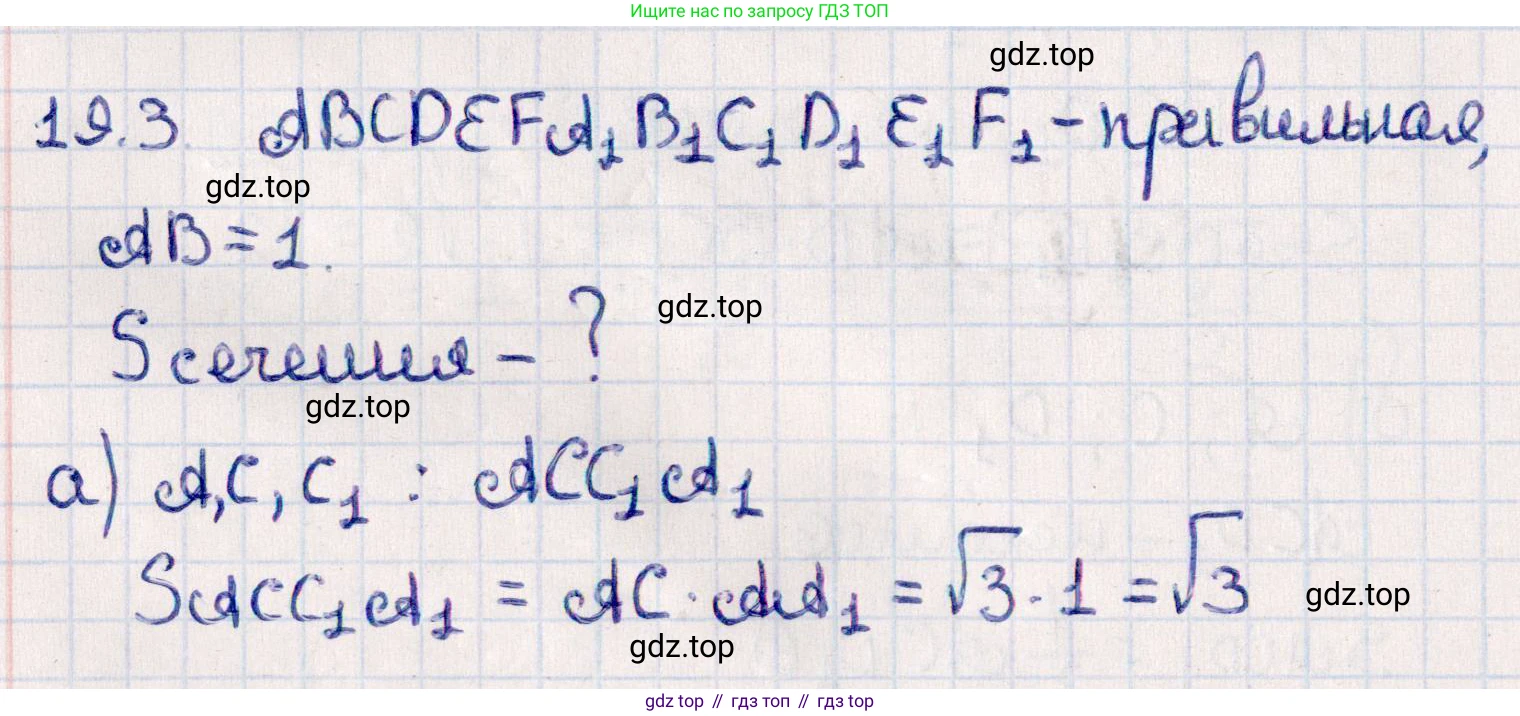 Ищите нас по запросу ГДЗ ТОП
gdz.top
19.3. ABCDEFA₁B₁C₁D₁E₁F₁ - правильная,
gdz.top
AB = 1.
gdz.top
Sсечения - ?
gdz.top
а) A, C, C₁ : ACC₁A₁
SACC₁A₁ = AC · AA₁ = √3 · 1 = √3
gdz.top
gdz.top
gdz top // гдз топ // гдз top